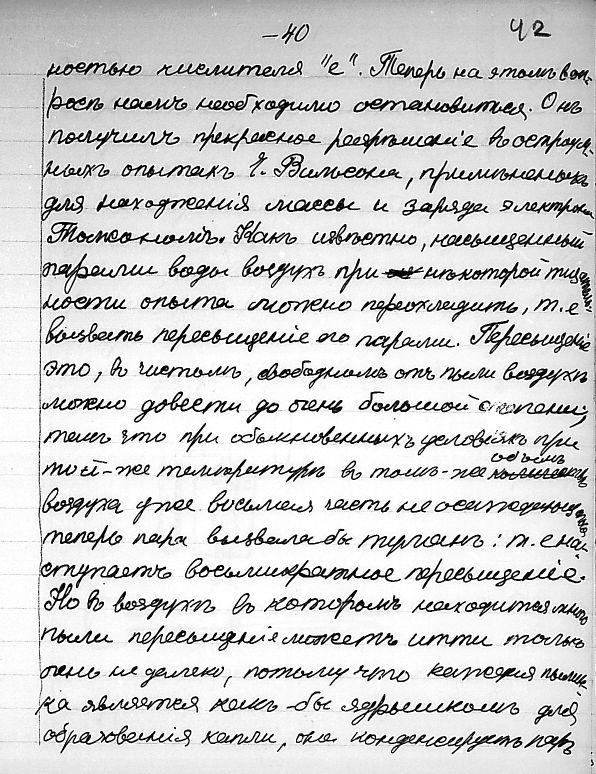 -40 42
ностью числителя "е". Теперь на этомъ воп-
росѣ намъ необходимо остановиться. Онъ
получилъ прекрасное разрѣшеніе въ остроум-
ныхъ опытахъ Вильсона, примѣненныхъ
для нахожденія массы и заряда электрона
Томсономъ. Какъ извѣстно, насыщенный
парами воды воздухъ при нѣкоторой тщатель-
ности опыта можно переохладить, т.е
вызвать пересыщеніе его парами. Пересыщеніе
это, въ чистомъ, свободномъ отъ пыли воздухѣ
можно довести до очень большой степени;
тамъ что при обыкновенныхъ условіяхъ при
той-же температурѣ въ томъ-же объемѣ
воздуха уже восьмая часть не осажденнаго
теперь пара вызвала бы туманъ: т.е на-
ступаетъ восьмикратное пересыщеніе.
Но въ воздухѣ въ которомъ находится много
пыли пересыщеніе можетъ итти только
очень не далеко, потому что каждая пылин-
ка является какъ-бы ядрышкомъ для
образованія капли, она конденсируетъ паръ